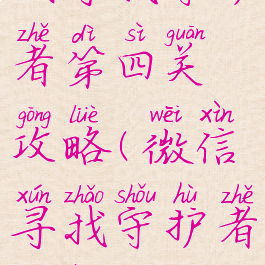 zhě dì sì guān
者第四关
gōng lüè wēi xìn
攻略(微信
xún zhǎo shǒu hù zhě
寻找守护者